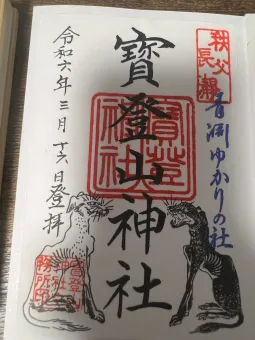 秩父
長瀞
青淵ゆかりの社
寶登山神社
寶登山神社
令和六年三月十六日登拝
寶登山
神社
務所印